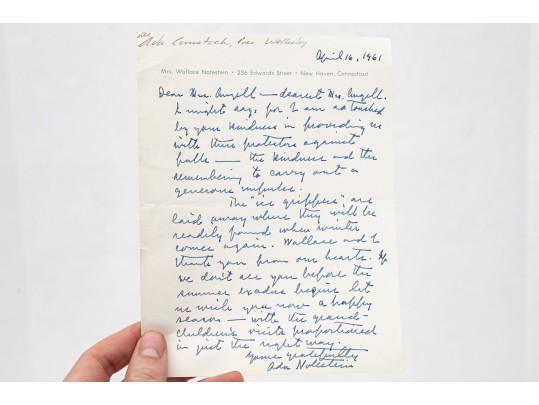 see
Ada Comstock, Pres Wellesley
April 16, 1961
Mrs. Wallace Notestein • 236 Edwards Street • New Haven, Connecticut
Dear Mrs. Angell — dearest Mrs. Angell,
I might say, for I am so touched
by your kindness in providing us
with these protectors against
falls — the kindness and the
remembering to carry out a
generous impulse.
The "ice grippers" are
laid away where they will be
readily found when winter
comes again. Wallace and I
thank you from our hearts. If
we don't see you before the
summer exodus begins let
us wish you now a happy
season — with the grand-
children's visits proportioned
in just the right way.
Yours gratefully
Ada Notestein